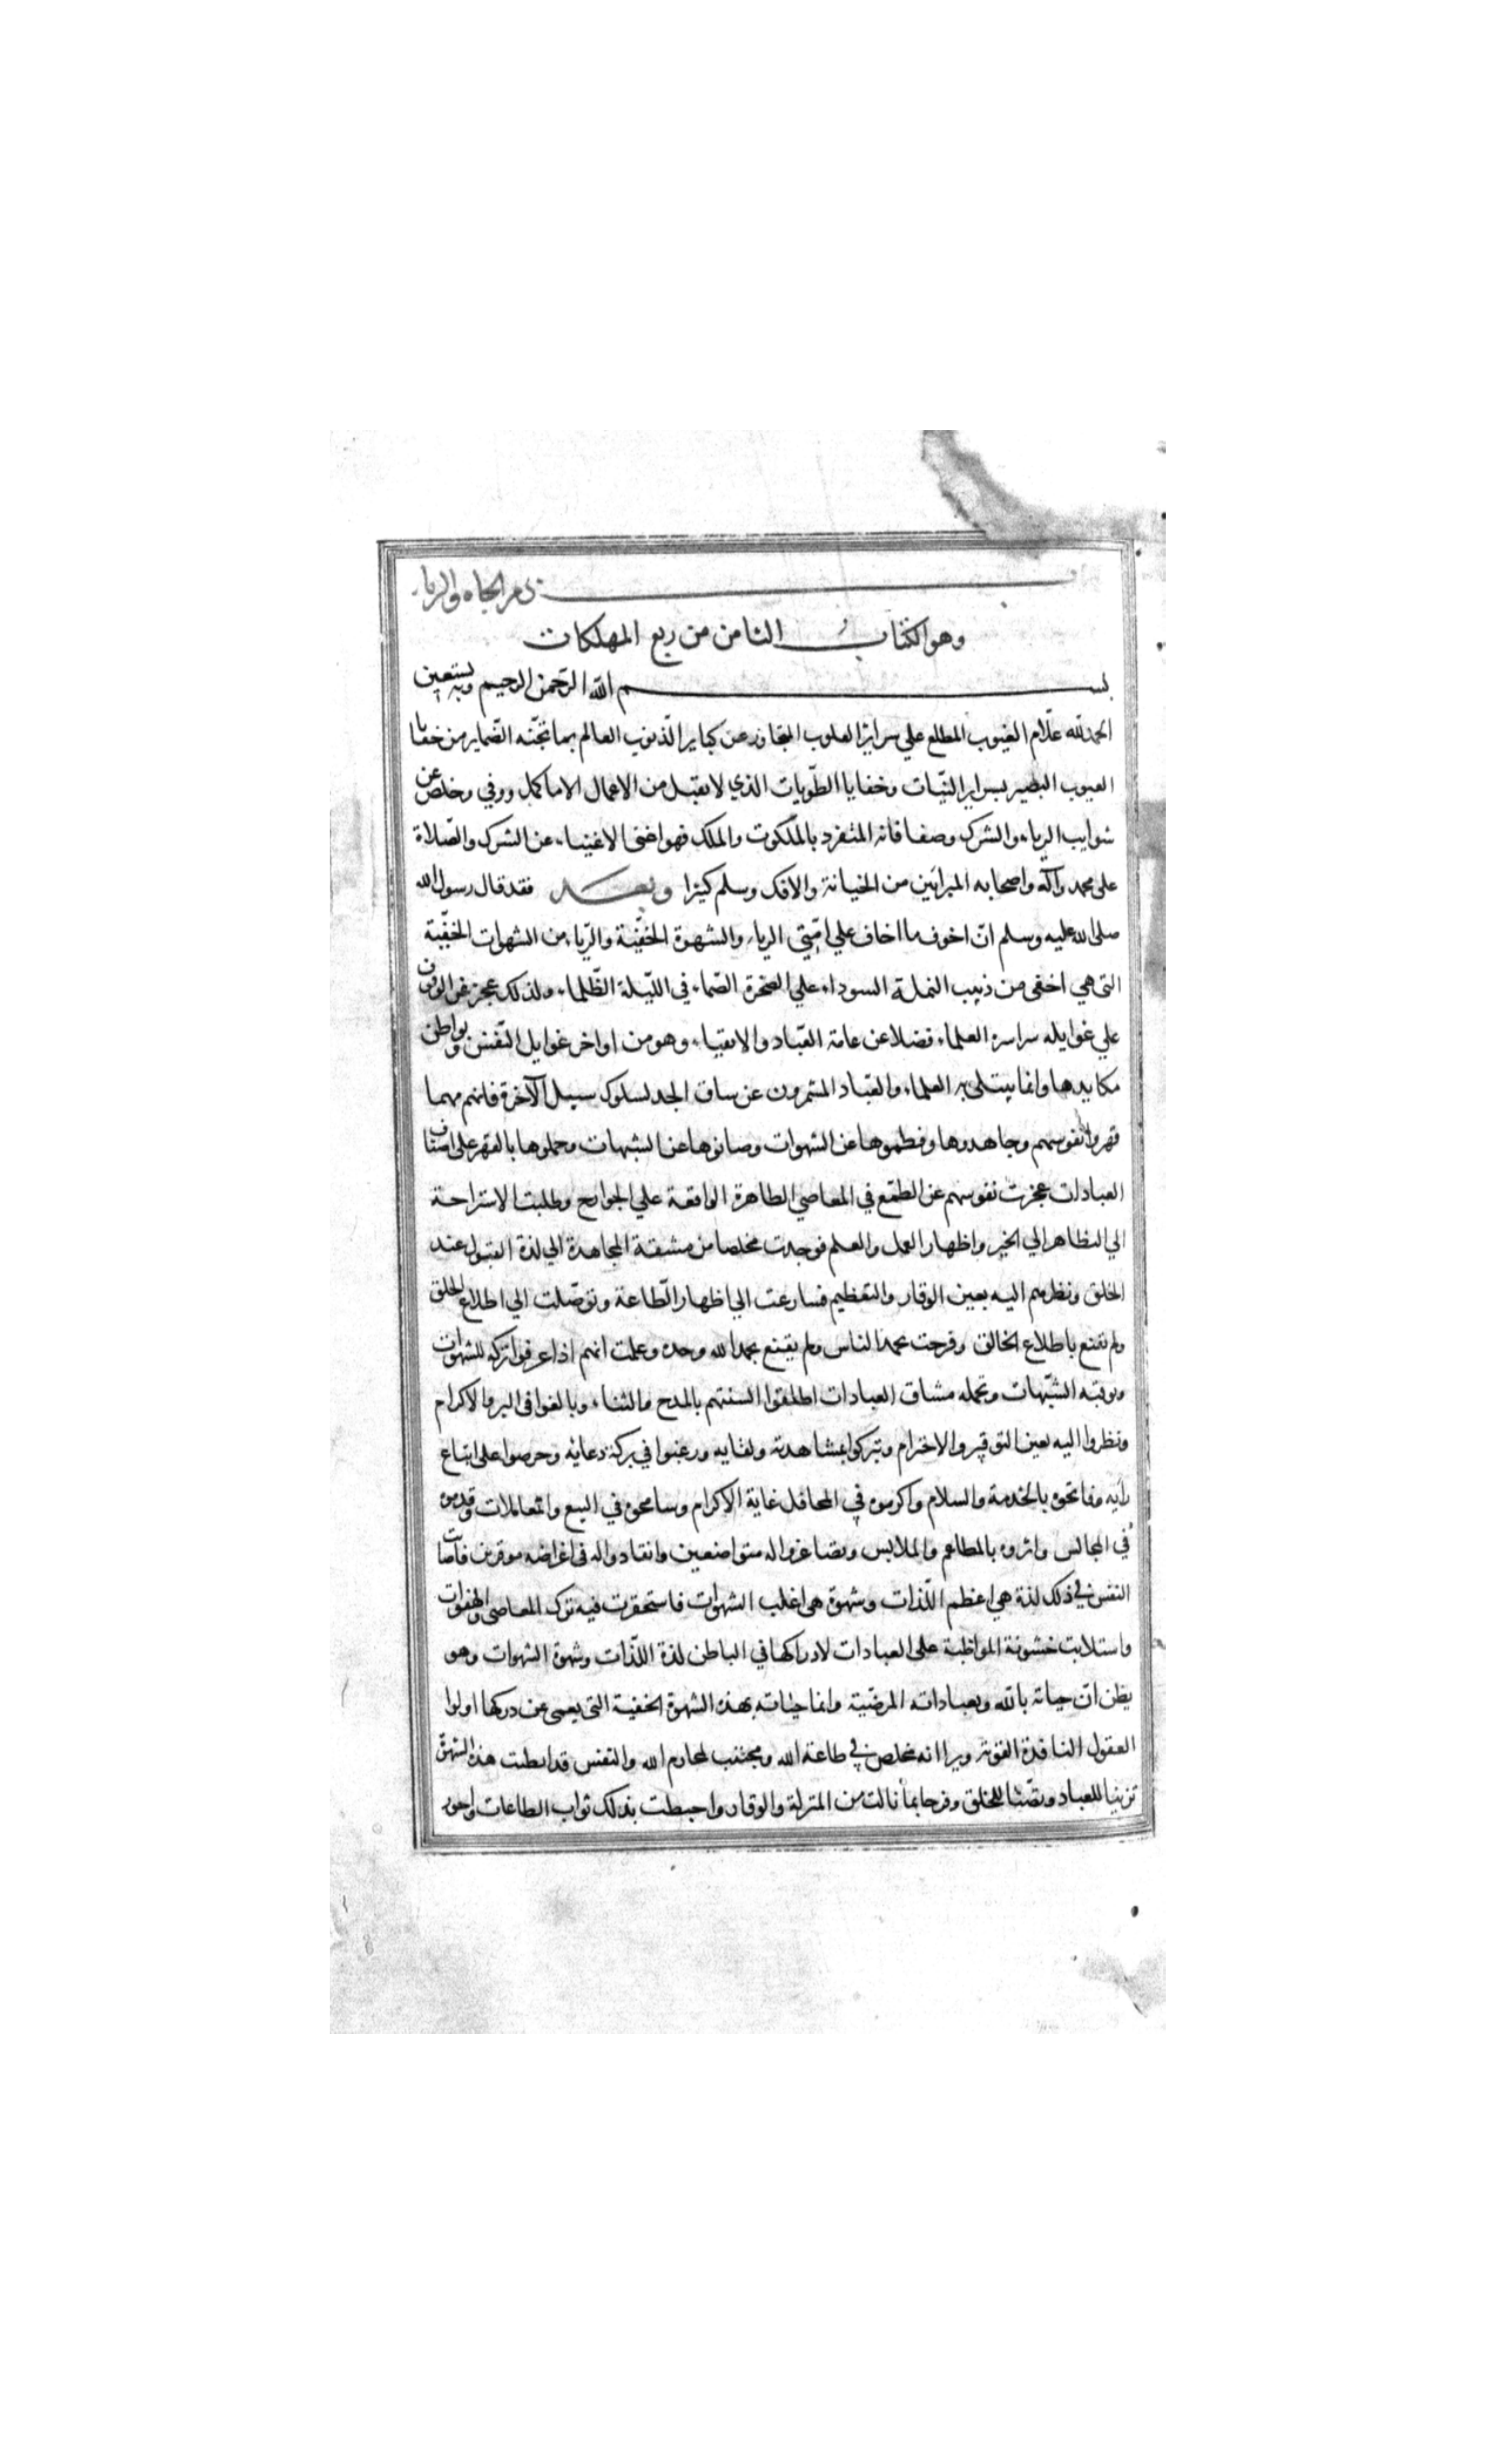 ذم الجاه والريا
وهو الكتاب الثامن من ربع المهلكات
بسم الله الرحمن الرحيم وبه نستعين
الحمد لله علّام الغيوب المطلع علي سراير القلوب المتجاوز عن كباير الذنوب العالم بما تجنّه الضماير من خفايا
العيوب البصير بسراير النيّات وخفايا الطّويات الذي لا يقبل من الاعمال الا ما كمل ووفي وخلص عن
شوايب الرياء والشرك وصفا فانه المتفرد بالملكوت والملك فهو اغنى الاغنيا، عن الشرك والصّلاة
على محمد وآله واصحابه المبرايَن من الخيانة والافك وسلم كثيرا وبعد فقد قال رسول الله
صلى الله عليه وسلم انّ اخوف ما اخاف علي امّتي الرياء والشهوة الخفيّة والرّياء من الشهوات الخفيّة
التى هي اخفى من دبيب النملة السوداء علي الصخرة الصّماء في الليّلة الظّلماء ولذلك عجز عن الوقوف
علي غوايله سماسرة العلماء فضلا عن عامة العبّاد والاتقياء وهو من اواخر غوايل النّفس وبواطن
مكايدها وانما يبتلى به العلماء والعبّاد المشمرون عن ساق الجد لسلوك سبيل الآخرة فانهم مهما
قهروا نفوسهم وجاهدوها وفطموها عن الشهوات وصانوها عن الشبهات وحملوها بالقهر على اصناف
العبادات عجزت نفوسهم عن الطمع في المعاصي الظاهرة الواقعة علي الجوارح وطلبت الاستراحة
الي التظاهر الي الخير واظهار العمل والعلم فوجدت مخلصا من مشقة المجاهدة الي لذة القبول عند
الخلق ونظرهم اليه بعين الوقار والتعظيم فسارعت الي اظهار الطّاعة وتوصّلت الي اطلاع الخلق
ولم تقنع باطلاع الخالق وفرحت بحمد الناس ولم يقنع بحمد الله وحده وعلمت انهم اذا عرفوا تركه للشهوات
وتوقيه الشّبهات وتحمله مشاق العبادات اطلقوا السنتهم بالمدح والثناء وبالغوا في البر والاكرام
ونظروا اليه بعين التوقير والاحترام وتبركوا بمشاهدته ولقايه ورغبوا في بركة دعائه وحرصوا على اتباع
رايه وفاتحوه بالخدمة والسلام واكرموه في المحافل غاية الاكرام وسامحوه في البيع والمعاملات وقدموه
في المجالس واثروه بالمطاعم والملابس وتصاغروا له متواضعين وانقادوا له في اغراضه موقرين فاصابت
النفس في ذلك لذة هي اعظم اللّذات وشهوة هي اغلب الشهوات فاستحقرت فيه ترك المعاصي والهفوات
واستلانت خشونة المواظبة على العبادات لادراكها في الباطن لذة اللّذات وشهوة الشهوات وهو
يظن انّ حياته بالله وبعباداته المرضيّة وانما حياته بهذه الشهوة الخفية التي يعمى عن دركها اولوا
العقول النافذة القوية ويرا انه مخلص في طاعة الله ومجتنب لمحارم الله والنفس قد ابطنت هذه الشهوة
تزينا للعباد وتصنّعا للخلق وفرحا بما نالت من المنزلة والوقار واحبطت بذلك ثواب الطاعات واجور